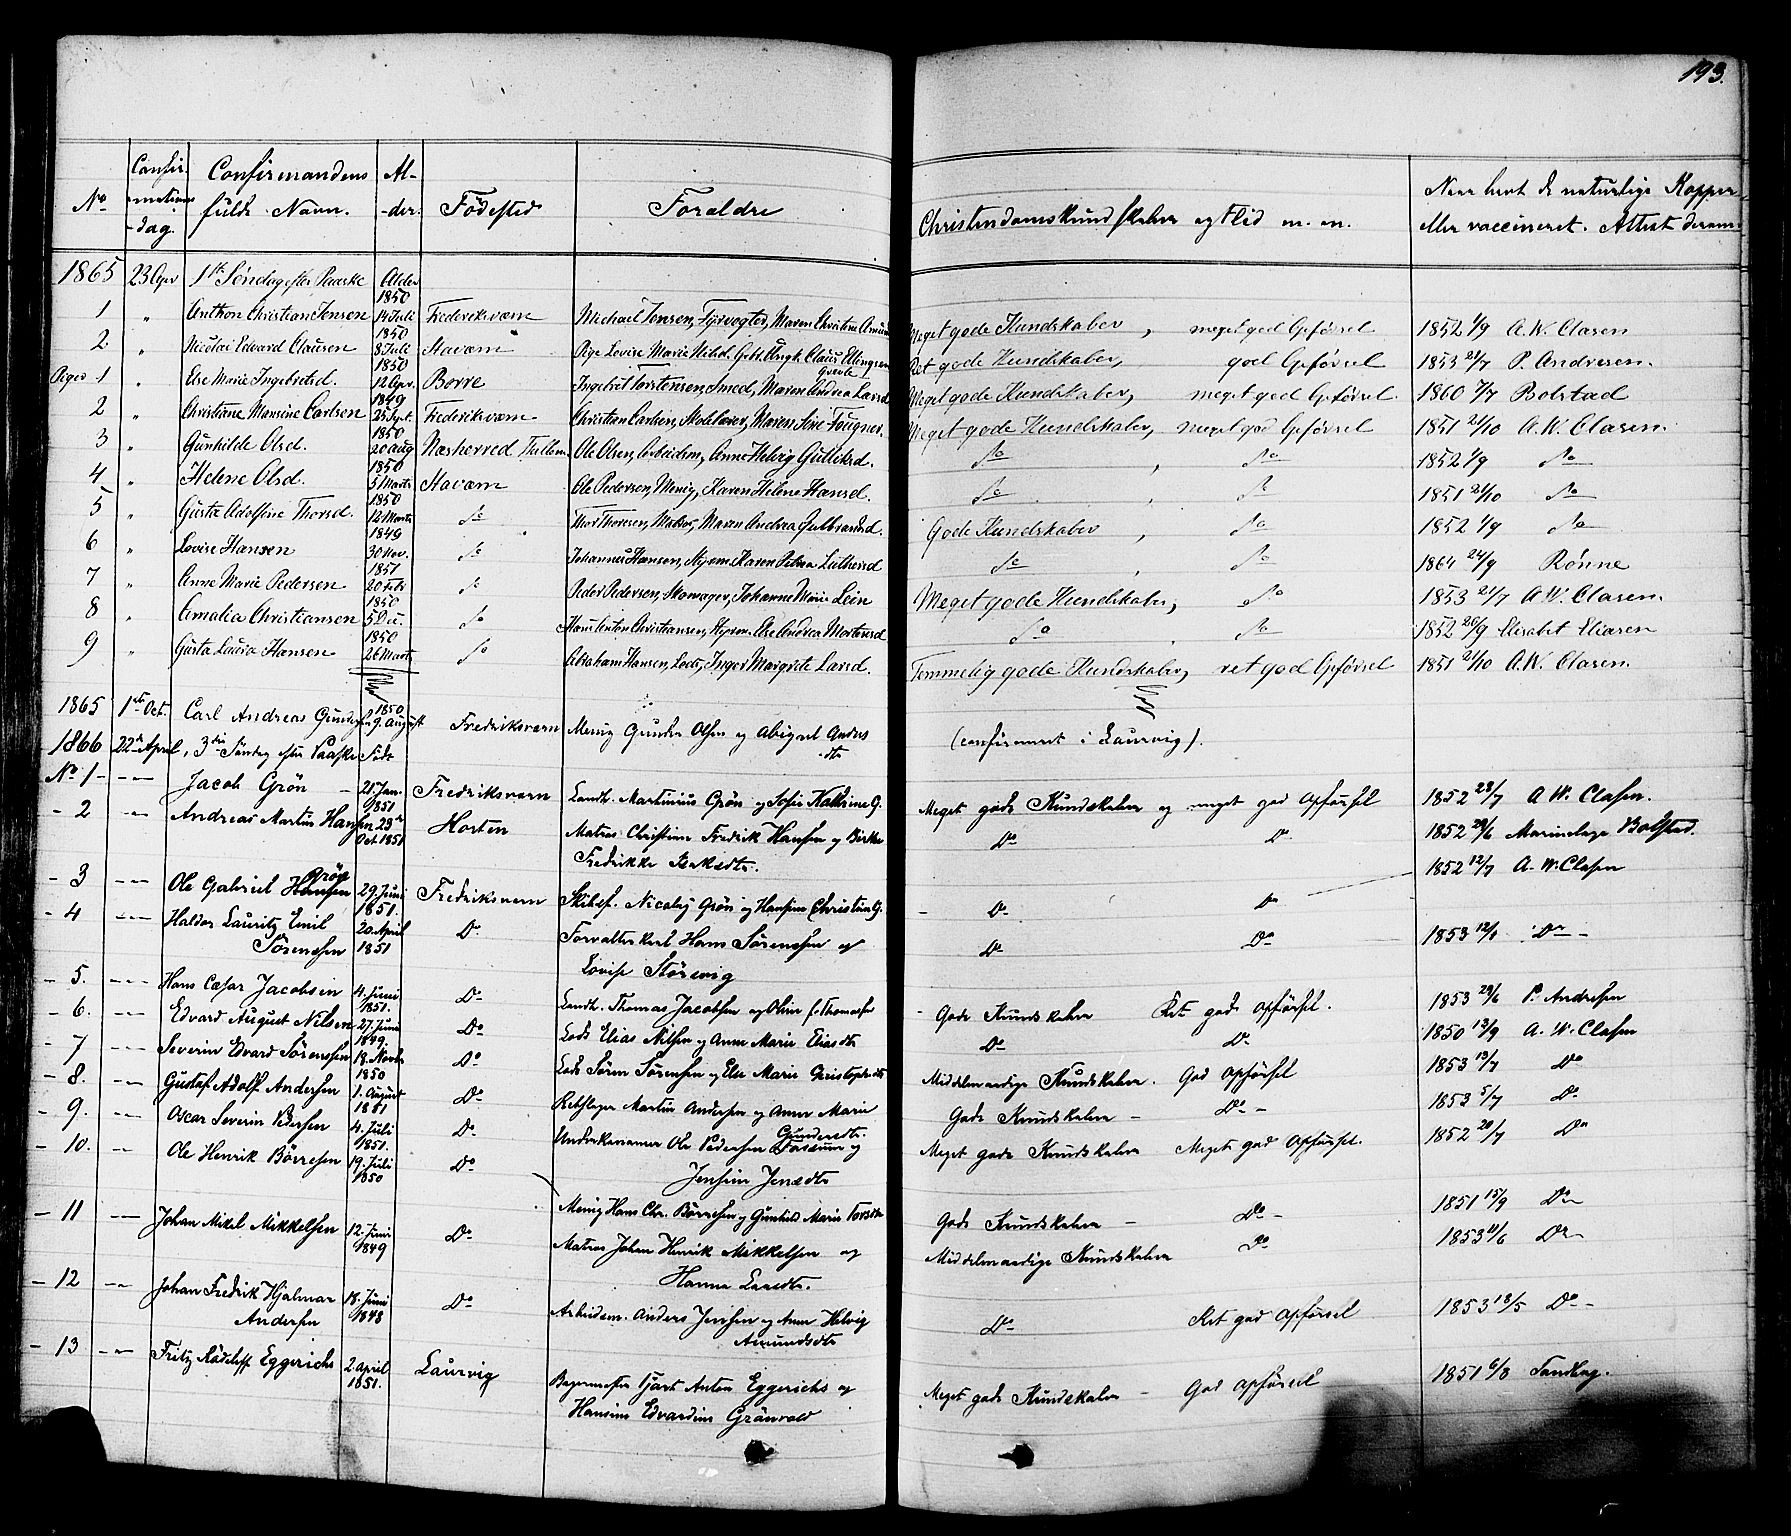 193.
No Confirmations-dag. Confirmandens fulde Navn. Al-der. Födested Foraldre Christendomskundskaber og Flid m. m. Naar havt de naturlige Kopper eller vaccineret. Attest derom.
1865 23 Apr 1ste Söndag efter Paaske Alder
1 " Anthon Christian Jensen 1850 14 Juli Frederiksværn Michael Jensen, Fyrvogter, Maren Christine Amund Meget gode Kundskaber, meget god Opförsel 1852 1/9 A.W. Clasen
2 " Nicolai Edvard Clausen 1850 8 Juli Stavern Pige Lovise Marie Nilsd. Gebt. Ungk. Claus Ellingsen Ret gode Kundskaber, god Opförsel 1853 21/7 P. Andresen.
Piger 1 " Else Marie Ingebretsd. 1850 12 Apr. Borre Ingebret Torstensen, Smed, Maren Andrea Larsd Meget gode Kundskaber, meget god Opförsel 1860 7/7 Bolstad
2 " Christiane Monsine Carlsen 1849 25 Sept. Frederiksværn Christian Carlsen, Skolelærer, Maren Sire Fougner. Meget gode Kundskaber, meget god Opförsel 1851 21/10 A.W. Clasen.
3 " Gunhilde Olsd. 1850 20 Aug Næsherred Ole Olsen, Arbeidsm, Anne Helvig Gulliksd. do do 1852 1/9 do
4 " Helene Olsd. 1850 5 Marts Stavern Ole Pedersen, Menig, Karen Helene Hansd. do do 1851 21/10 do
5 " Gusta Adolfine Thorsd. 1850 12 Marts do Thor Thoresen, Matros, Maren Andrea Gulbrandsd. Gode Kundskaber, do 1852 1/9 do
6 " Lovise Hansen 1849 30 Nov. do Johannes Hansen, Styrm. Karen Petrea Luthersd do do 1864 24/9 Rönne
7 " Anne Marie Pedersen 1851 20 Feb do Peder Pedersen, Skomager, Johanne Marie Lein Meget gode Kundskaber, do 1853 21/7 A.W. Clasen.
8 " Amalia Christiansen 1850 do Hans Anton Christiansen, Styrm. Else Andrea Mortensd do do 1852 20/9 Elisabet Eliasen
9 " Gusta Laura Hansen 1850 26 Marts do Abraham Hansen, Lods, Inger Margrete Larsd. Temmelig gode Kundskaber, ret god Opförsel 1851 21/10 A.W. Clasen.
1865 1ste Oct. Carl Andreas 1850 9. August Fredriksværn Menig Gunder Olsen og Abigael Andersdtr (confirmeret i Laurvig).
1866 22de April, 3die Söndag efter Paaske Födt
No 1 - --- Jacob Grön - 21. Jan. 1851 Fredriksværn Landh. Martinius Grön og Sofie Kathrine G. Meget gode Kundskaber og meget god Opförsel 1852 28/7 A.W. Clasen.
- 2 --- Andreas Martin Hansen 23de Oct. 1851 Horten Matros Christian Fredrik Hansen og Birthe Do Do 1852 29/6 Marinelæge Bolstad.
Fredrikke 1852 12/7 A.W. Clasen
- 3 --- Ole Gabriel Grön 29. Juni 1851. Fredriksværn Skibsf. Nicolaj Grön og Hansine Christine G. - Do Do
- 4 --- Haldor Lauritz Emil 20. April 1851 Do Forvalter Hans Sörensen og Do Do 1853 12/8 Do -
Sörensen Lovise Störevig
- 5. --- Hans Cæsar Jacobsen 4. Juni 1851. Do Landh. Thomas Jacobsen og Oline Thomasen Gode Kundskaber Ret god Opförsel. 1853 29/6 P. Andresen
- 6. --- Edvard August Nilsen 27. Juni 1849. Do Lods Elias Nilsen og Anne Marie Eliasdtr Do Do 1850 13/9 A.W. Clasen
- 7 --- Severin Edvard Sörensen 18. Novbr 1850 Do Lods Sören Sörensen og Else Marie Christophdtr Middelmaadige Kundskaber. God Opförsel 1853 13/7 Do
- 8. --- Gustaf Adolf Andersen 1. August 1851 Do Rebslager Martin Andersen og Anne Marie Gundersdtr. Gode Kundskaber - Do - 1853 5/7 Do
- 9. --- Oscar Severin Pedersen 4. Juli 1851. Do Underkanoner Ole Pedersen og Meget gode Kundskaber Meget god Opförsel. 1852 20/7 Do
Jensine Jensdtr
- 10. -- Ole Henrik Börresen 19. Juli 1850 Do Menig Hans Chr. Börresen og Gunhild Marie Gode Kundskaber - Do - 1851 15/9 Do
- 11 --- Johan Mikel Mikkelsen 12. Juni 1849 Do Matros Johan Henrik Mikkelsen og Middelmaadige Kundskaber Do 1853 11/6 Do
Hanna Larsdtr.
- 12 --- Johan Fredrik Hjalmar 18. Juni 1848 Do Arbeidsm. Anders Jensen og Anne Helvig Do Ret god Opförsel 1853 18/5 Do -
Andersen Amundsdtr
- 13 --- Fritz Rödleff Eggerichs 2. April 1851. Laurvig Bagermester Gjart Anton Eggerichs og Meget gode Kundskaber - God Opförsel 1851 6/8 Sandberg.
Hansine Edvardine Grönvold